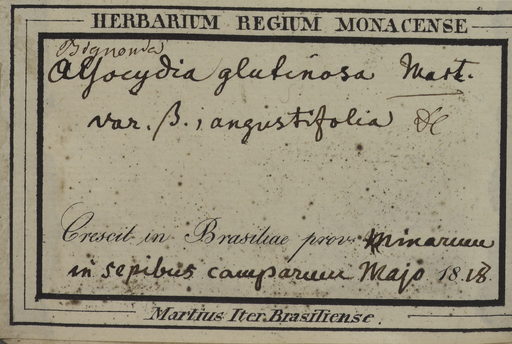 HERBARIUM REGIUM MONACENSE
Bignonia
Alsocydia glutinosa Mart.
var. β., angustifolia DC
Crescit in Brasiliae prov. Minarum
in sepibus camparum Majo 1818
Martius Iter Brasiliense.